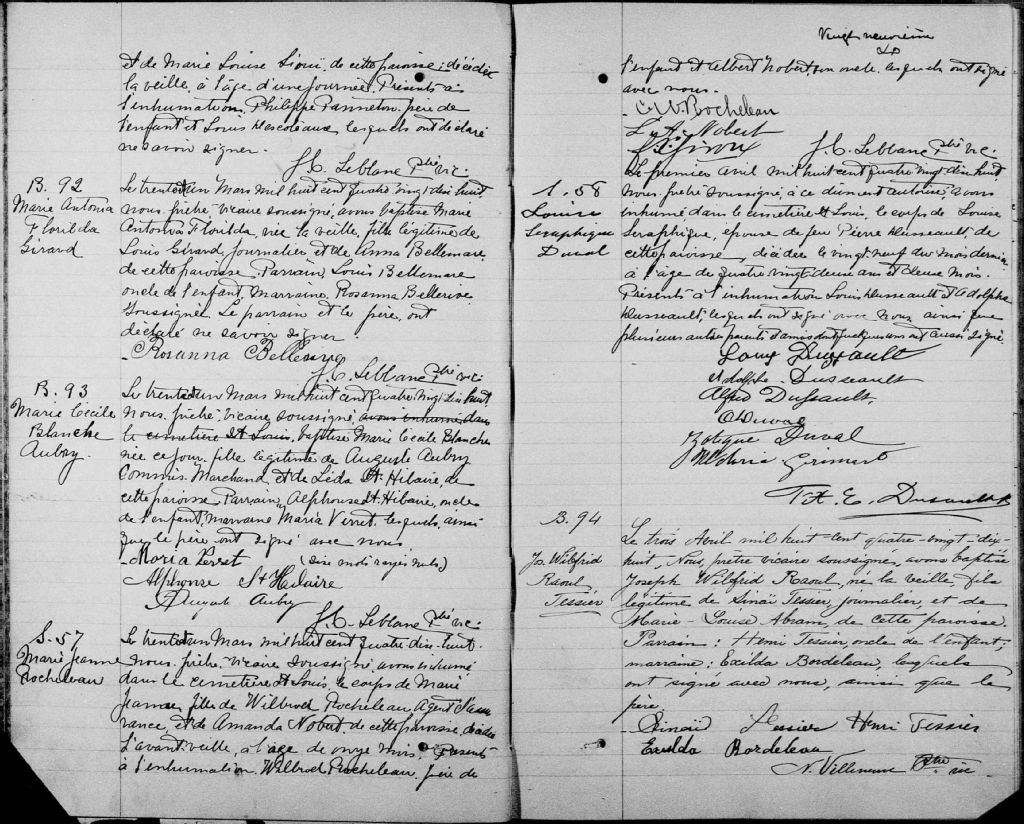 et de Marie Louise Sioui de cette paroisse; décédée
la veille, à l'âge d'une journée. Présents à
l'inhumation, Philippe Panneton père de
l'enfant et Louis lesquels ont déclaré
ne savoir signer.
J. C. Leblanc Ptre vic.
B. 92
Marie Antonia
Florilda
Girard
Le trente et un Mars mil huit cent quatre vingt dix huit
nous, prêtre vicaire soussigné, avons baptisé Marie
Antonia Florilda, née la veille, fille légitime de
Louis Girard, journalier et de Anna Bellemare,
de cette paroisse. Parrain, Louis Bellemare
oncle de l'enfant, Marraine, Rosanna Bellerive
soussignée. Le parrain et le père, ont
déclaré ne savoir signer
Rosanna Bellerive
J. C. Leblanc Ptre vic.
B. 93
Marie Cécile
Blanche
Aubry.
Le trente et un Mars mil huit cent quatre vingt dix huit
Nous, prêtre vicaire soussigné avons inhumé dans
le cimetière St Louis, baptisé Marie Cécile Blanche
née ce jour, fille légitime de Auguste Aubry
Commis Marchand et de Léda St Hilaire, de
cette paroisse Parrain, Alphonse St Hilaire, oncle
de l'enfant, marraine Maria Verret, lesquels, ainsi
que le père ont signé avec nous
Maria Verret (six mots rayés nuls)
Alphonse St Hilaire
Auguste Aubry
J. C. Leblanc Ptre vic.
S. 57
Marie Jeanne
Rocheleau
Le trente et un Mars mil huit cent quatre dix huit.
nous, prêtre vicaire soussigné, avons inhumé
dans le cimetière St Louis, le corps de Marie
Jeanne, fille de Wilbrod Rocheleau Agent d'assu
rance, et de Amanda Nobert de cette paroisse, décédée
l'avant veille, à l'âge de onze mois, Présents
à l'inhumation, Wilbrod Rocheleau, père de
Vingt neuvième
l'enfant et Albert Nobert, son oncle, lesquels ont signé
avec nous.
W. Rocheleau
Nobert
J. C. Leblanc Ptre vic.
S. 58
Louise
Seraphique
Duval
Le premier avril mil huit cent quatre vingt dix huit,
nous, prêtre soussigné, à ce dûment autorisé, avons
inhumé dans le cimetière St Louis, le corps de Louise
Seraphique, épouse de feu Pierre Dusseault, de
cette paroisse, décédée le vingt neuf du mois dernier
à l'âge de quatre vingt deux ans et deux mois.
Présents à l'inhumation Louis Dusseault et Adolphe
Dusseault, lesquels ont signé avec nous ainsi que
plusieurs autres parents et amis dont quelques uns ont aussi signé.
Louis Dussault
Adolphe Dusseault
Alfred Dussault.
O Duval
Zotique Duval
T. A. E. Dusseault
B. 94
Js. Wilfrid
Raoul
Tessier
Le trois Avril mil huit-cent quatre-vingt-dix-
huit, Nous, prêtre vicaire soussigné, avons baptisé
Joseph Wilfrid Raoul, né la veille, fils
légitime de Sinaï Tessier, journalier, et de
Marie-Louise Abram, de cette paroisse.
Parrain: Henri Tessier, oncle de l'enfant;
marraine: Exilda Bordeleau, lesquels
ont signé avec nous, ainsi que le
père
Sinaïd Tessier Henri Tessier
Exilda Bordeleau
N. Villeneuve Ptre vic